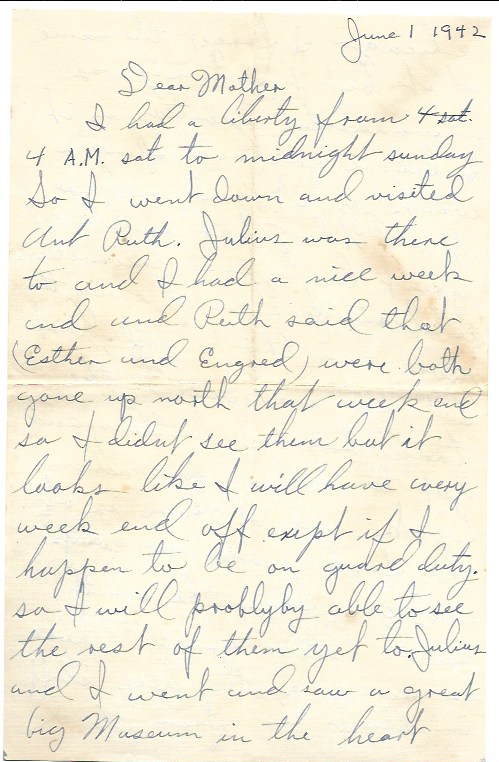 June 1 1942
Dear Mother
I had a liberty from 4 sat.
4 A.M. sat to midnight sunday
So I went down and visited
Ant Ruth. Julius was there
to and I had a nice week
end and Ruth said that
(Esther and Engred) were both
gone up north that week end
so I didnt see them but it
looks like I will have every
week end off exept if I
happen to be on guard duty.
so I will problyby able to see
the rest of them yet to. Julius
and I went and saw a great
big Museum in the heart